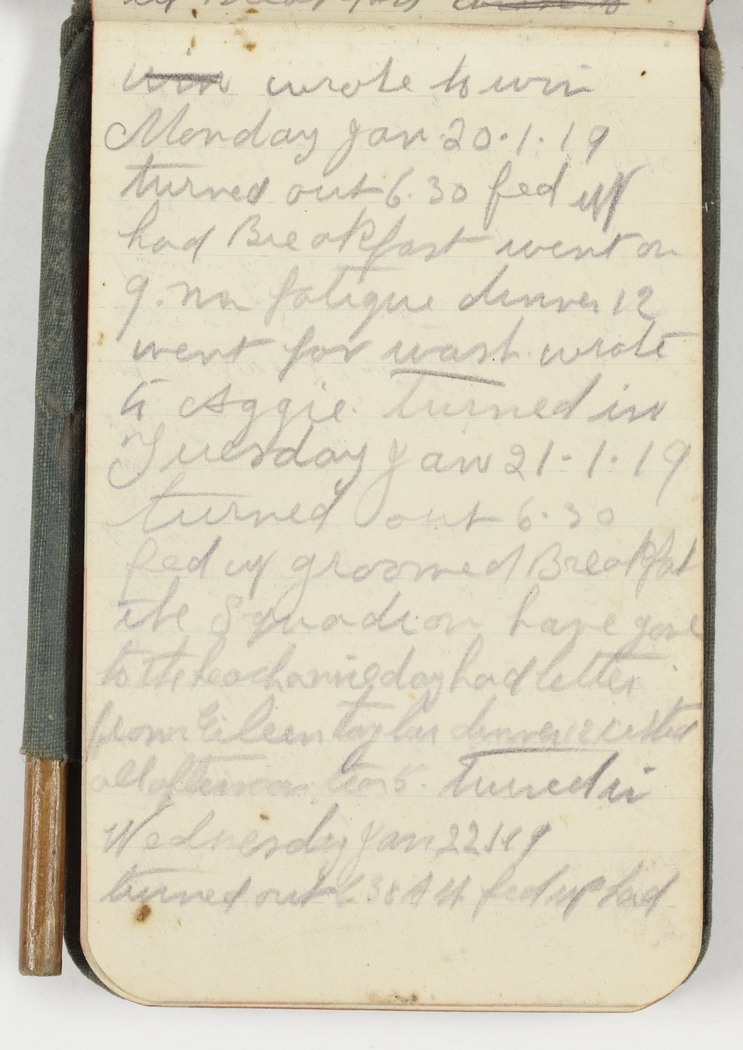 win wrote to win
Monday Jan. 20.1.19
turned out 6.30 fed up
had Breakfast went on
9. fatigue dinner 12
went for wash. wrote
to Aggie. turned in
Tuesday Jan 21-1.19
turned out 6.30
fed up groomed Breakfast
the Squadron have gone
to the day had letter
from Eileen Taylor dinner 12 rested
all afternoon tea 5. turned in
Wednesday Jan 22 1 19
turned out 6 30 A M fed up had